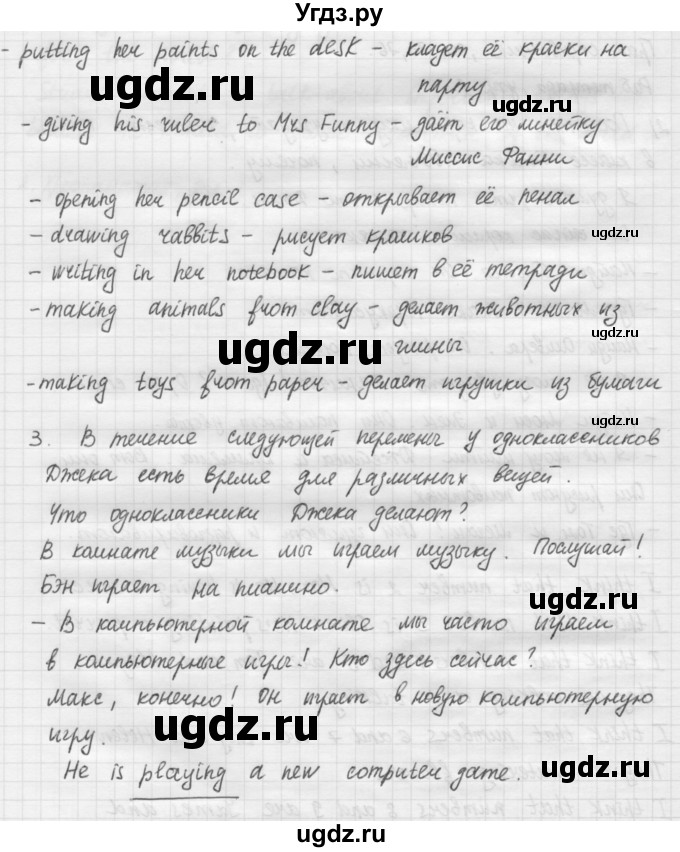 Угдз.ру
- putting her paints on the desk - кладет её краски на
парту
- giving his ruler to Mrs Funny - даёт его линейку
Миссис Фанни
- opening her pencil case - открывает её пенал
- drawing rabbits - рисует кроликов
- writing in her notebook - пишет в её тетради
- making animals from clay - делает животных из
глины
- making toys from paper - делает игрушки из бумаги
3. В течение следующей перемены у одноклассников
Джека есть время для различных вещей.
Что одноклассники Джека делают?
В комнате музыки мы играем музыку. Послушай!
Бэн играет на пианино.
- В компьютерной комнате мы часто играем
в компьютерные игры! Кто здесь сейчас?
Макс, конечно! Он играет в новую компьютерную
игру.
He is playing a new computer game.
ugdz.ru
ugdz.ru
ugdz.ru
ugdz.ru
ugdz.ru
ugdz.ru
ugdz.ru
ugdz.ru
ugdz.ru
ugdz.ru
ugdz.ru
ugdz.ru